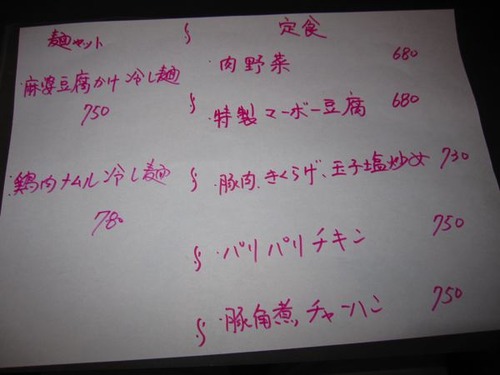 麺セット
麻婆豆腐かけ冷し麺
750
鶏肉ナムル冷し麺
780
定食
・肉野菜 680
・特製マーボー豆腐 680
・豚肉、きくらげ、玉子塩炒め 730
・パリパリチキン 750
・豚角煮、チャーハン 750